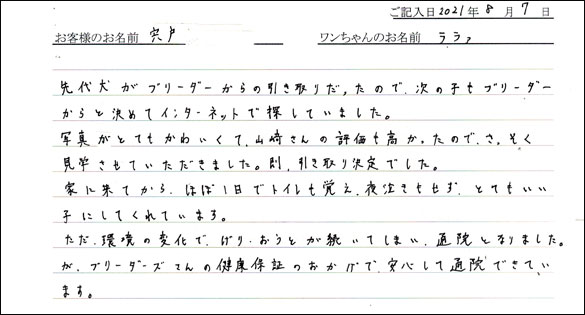 ご記入日 2021年 8 月 7 日
お客様のお名前 宍戸 ワンちゃんのお名前 ララァ
先代犬がブリーダーからの引き取りだったので、次の子もブリーダー
からと決めてインターネットで探していました。
写真がとてもかわいくて、山崎さんの評価も高かったので、さっそく
見学させていただきました。即、引き取り決定でした。
家に来てから、ほぼ1日でトイレも覚え、夜泣きもせず、とてもいい
子にしてくれています。
ただ、環境の変化で、げり・おうとが続いてしまい、通院となりました。
が、ブリーダーズさんの健康保証のおかげで、安心して通院できてい
ます。